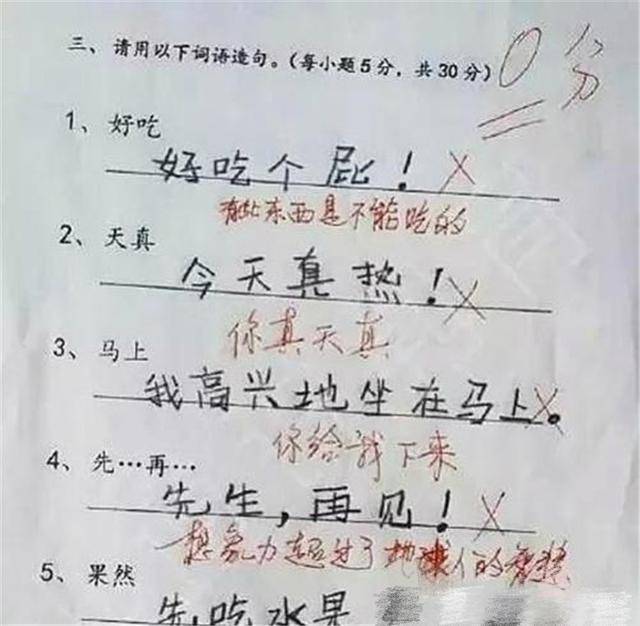 三、请用以下词语造句。(每小题5分,共30分)
0分
1、好吃
好吃个屁!
有些东西是不能吃的
2、天真
今天真热!
你真天真
3、马上
我高兴地坐在马上。
你给我下来
4、先…再…
先生,再见!
想象力超过了地球人的智慧
5、果然
先吃水果